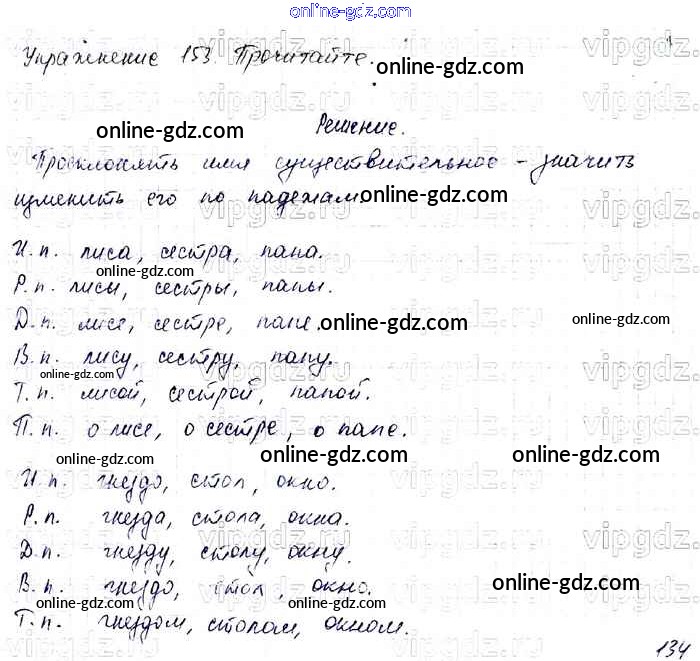 online-gdz.com
Упражнение 153. Прочитайте.
online-gdz.com
Решение.
online-gdz.com
Просклонять имя существительное - значит
изменить его по падежам.
online-gdz.com
И. п. лиса, сестра, папа.
online-gdz.com
Р. п. лисы, сестры, папы.
Д. п. лисе, сестре, папе.
online-gdz.com
online-gdz.com
В. п. лису, сестру, папу.
online-gdz.com
Т. п. лисой, сестрой, папой.
П. п. о лисе, о сестре, о папе.
online-gdz.com
online-gdz.com
online-gdz.com
И. п. гнездо, стол, окно.
Р. п. гнезда, стола, окна.
Д. п. гнезду, столу, окну.
В. п. гнездо, стол, окно.
online-gdz.com
online-gdz.com
online-gdz.com
Т. п. гнездом, столом, окном.
134
vipgdz.ru